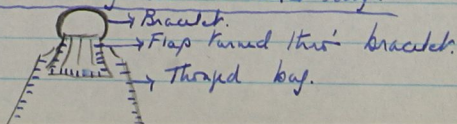 Bracelet.
Flap turned thro' bracelet.
Thonged bag.